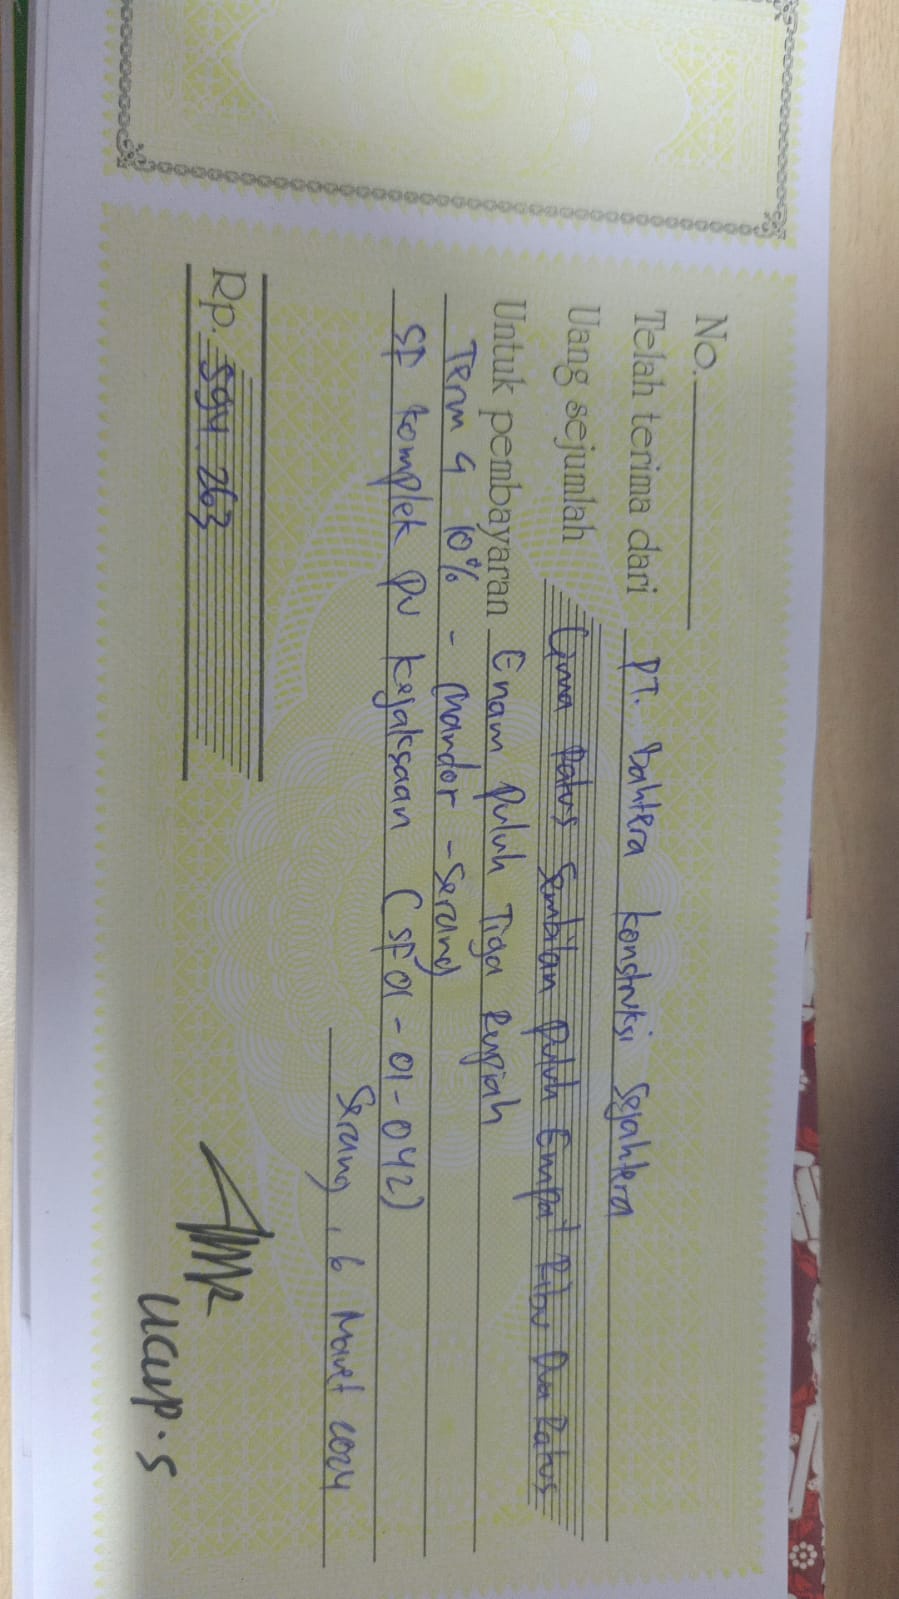 No.
Telah terima dari PT. Bahtera Konstruksi Sejahtera
Uang sejumlah Lima Ratus Sembilan Puluh Empat Ribu Dua Ratus
Untuk pembayaran Enam Puluh Tiga Rupiah
Term 4 10% - Mandor - Serang
SF Komplek PU Kejaksaan (SF01-01-042)
Serang, 6 Maret 2024
Rp. 594.263
Ucup.S